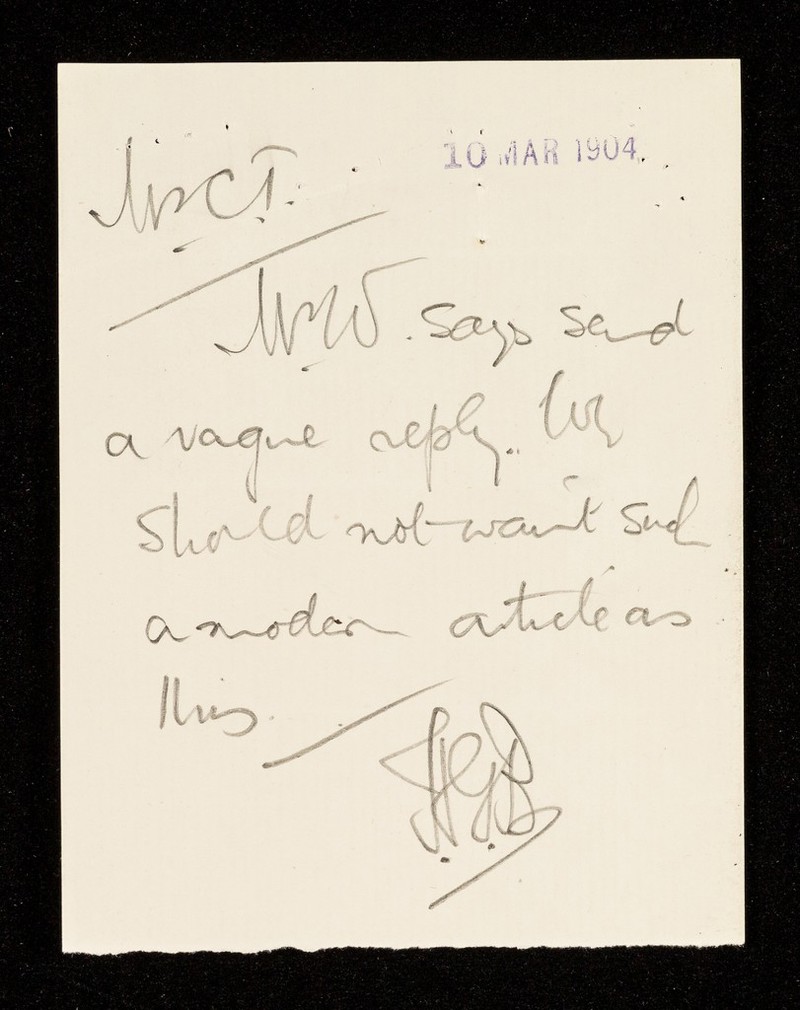 Mr C.T.
10 MAR 1904
Mr W. says send
a vague reply. We
should not want such
a modern article as
this.
H.G.B